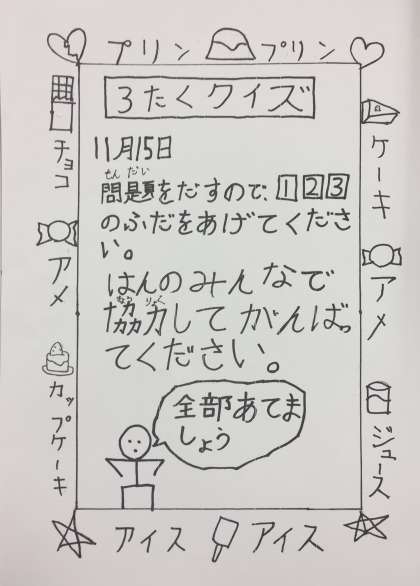 プリン プリン
3たくクイズ
11月15日
もんだい
問題をだすので、123
のふだをあげてくださ
い。
はんのみんなで
きょうりょく
協力してがんばっ
てください。
全部あてま
しょう
チョコ
アメ
カップケーキ
ケーキ
アメ
ジュース
アイス アイス